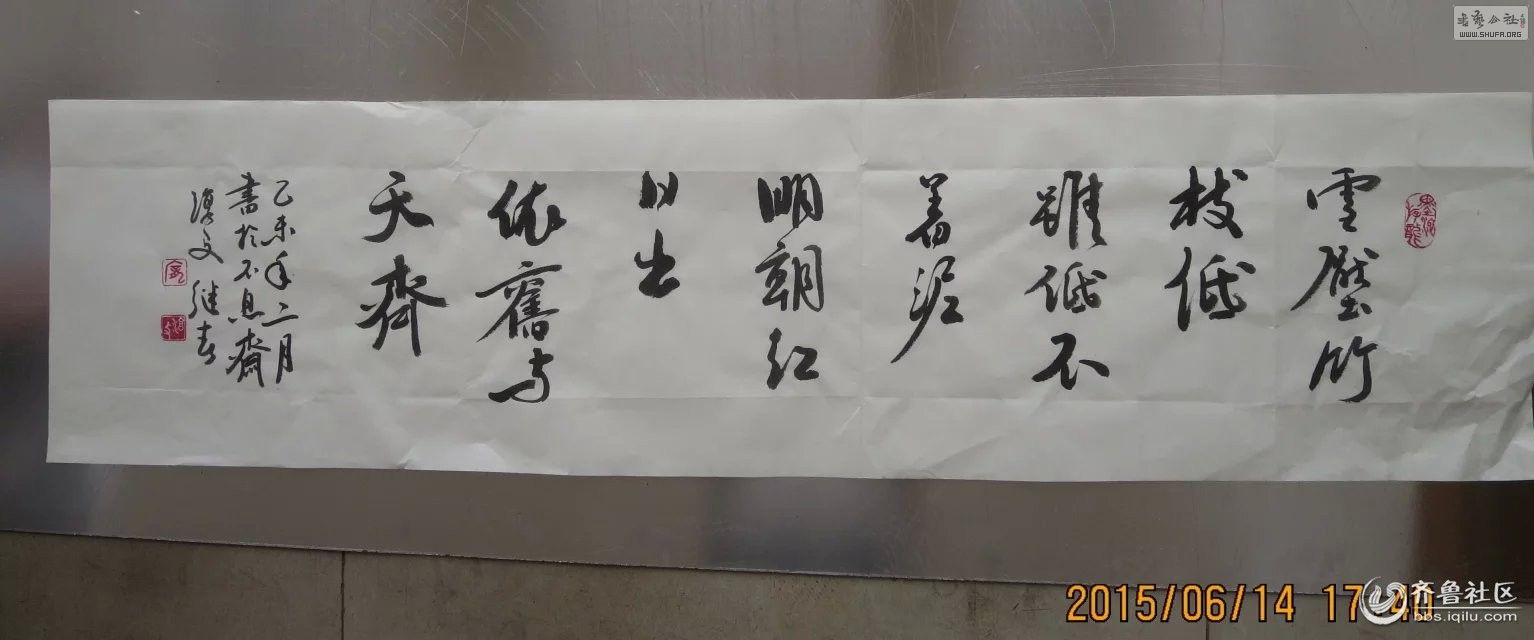 雪壓竹
枝低
雖低不
着泥
明朝红
日出
依舊与
天齊
乙未年二月
書於不息齋
继春
书艺公社
WWW.SHUFA.ORG
2015/06/14 17:40
齐鲁社区
bbs.iqilu.com